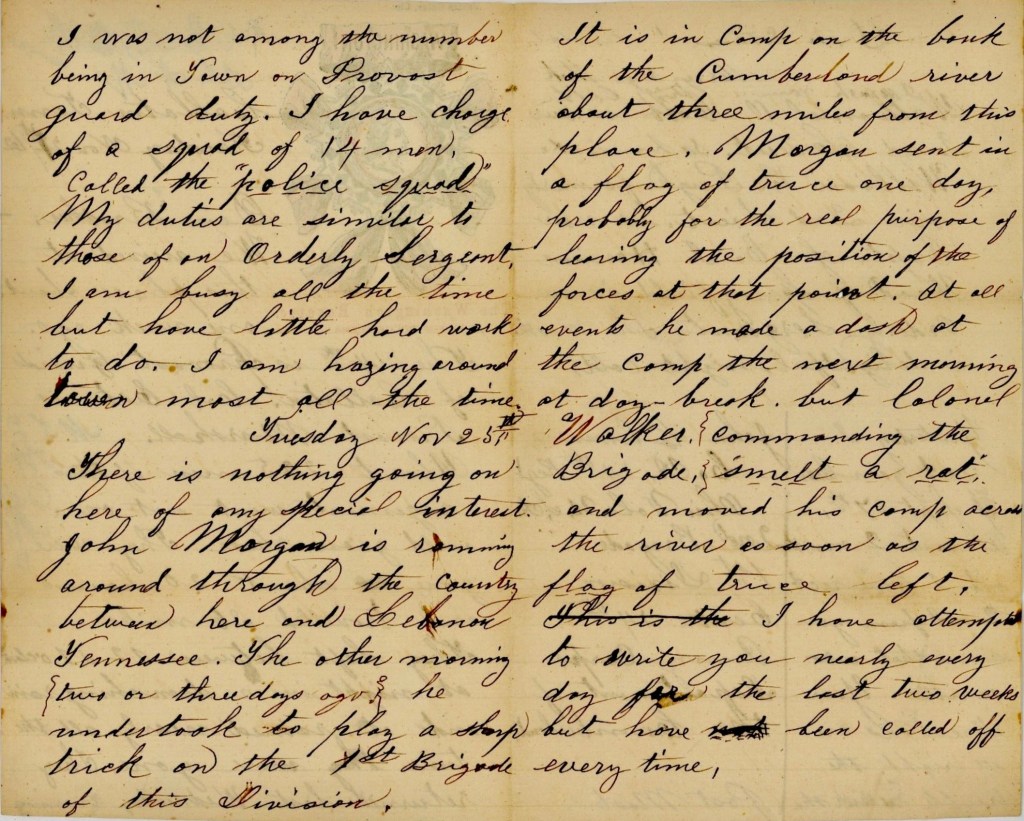 I was not among the number
being in Town on Provost
guard duty. I have charge
of a squad of 14 men.
Called the "police squad"
My duties are similar to
those of an Orderly Sergeant,
I am busy all the time
but have little hard work
to do. I am hazing around
town most all the time.
Tuesday Nov 25th
There is nothing going on
here of any special interest.
John Morgan is roming
around through the country
between here and Lebanon
Tennessee. The other morning
{two or three days ago} he
undertook to play a sharp
trick on the 1st Brigade
of this Division.
It is in Camp on the bank
of the Cumberland river
about three miles from this
place. Morgan sent in
a flag of truce one day,
probably for the real purpose of
learing the position of the
forces at that point. At all
events he made a dash at
the camp the next morning
at day-break. but Colonel
Walker, {commanding the
Brigade,} "smelt a rat".
and moved his camp across
the river as soon as the
flag of truce left.
This is the I have attempted
to write you nearly every
day for the last two weeks
but have not been called off
every time,